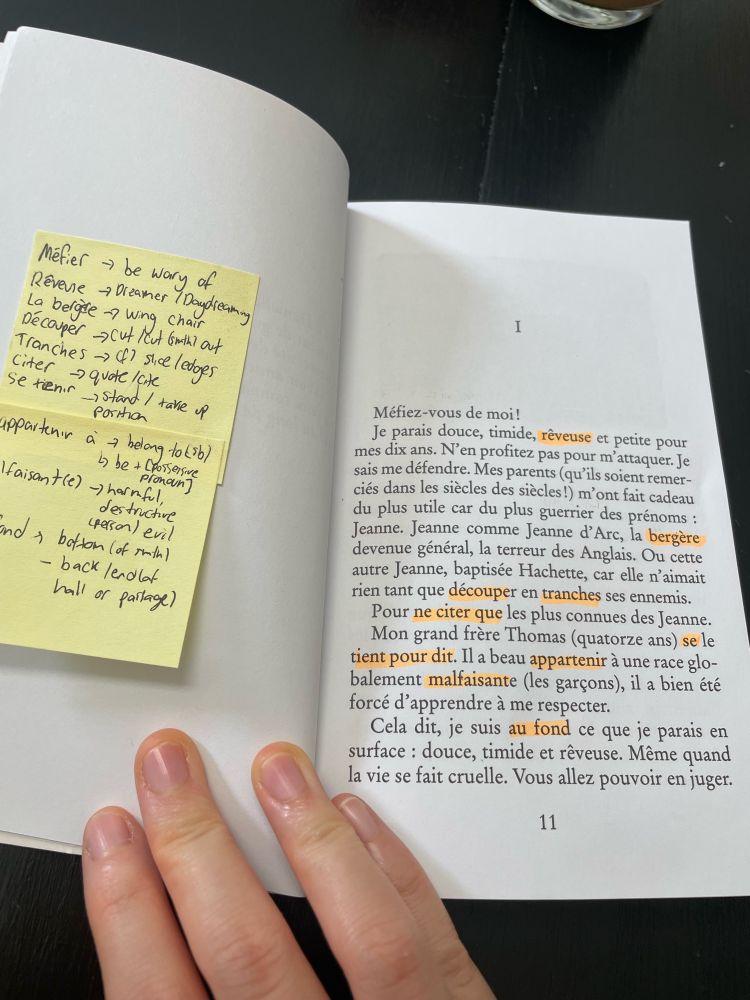 Méfier → be wary of
Rêveuse → Dreamer / Daydreaming
La bergère → wing chair
Découper → cut/cut (smth) out
Tranches → (f) slice/edges
Citer → quote/cite
Se tienir → stand / take up
position
appartenir à → belong to (sb)
↳ be + [possersive
pronoun]
lfaisant(e) → harmful,
destructive
(person) evil
ond → bottom (of smth)
- back/end (of
hall or partage)
I
Méfiez-vous de moi !
Je parais douce, timide, rêveuse et petite pour
mes dix ans. N'en profitez pas pour m'attaquer. Je
sais me défendre. Mes parents (qu'ils soient remer-
ciés dans les siècles des siècles !) m'ont fait cadeau
du plus utile car du plus guerrier des prénoms :
Jeanne. Jeanne comme Jeanne d'Arc, la bergère
devenue général, la terreur des Anglais. Ou cette
autre Jeanne, baptisée Hachette, car elle n'aimait
rien tant que découper en tranches ses ennemis.
Pour ne citer que les plus connues des Jeanne.
Mon grand frère Thomas (quatorze ans) se le
tient pour dit. Il a beau appartenir à une race glo-
balement malfaisante (les garçons), il a bien été
forcé d'apprendre à me respecter.
Cela dit, je suis au fond ce que je parais en
surface : douce, timide et rêveuse. Même quand
la vie se fait cruelle. Vous allez pouvoir en juger.
11